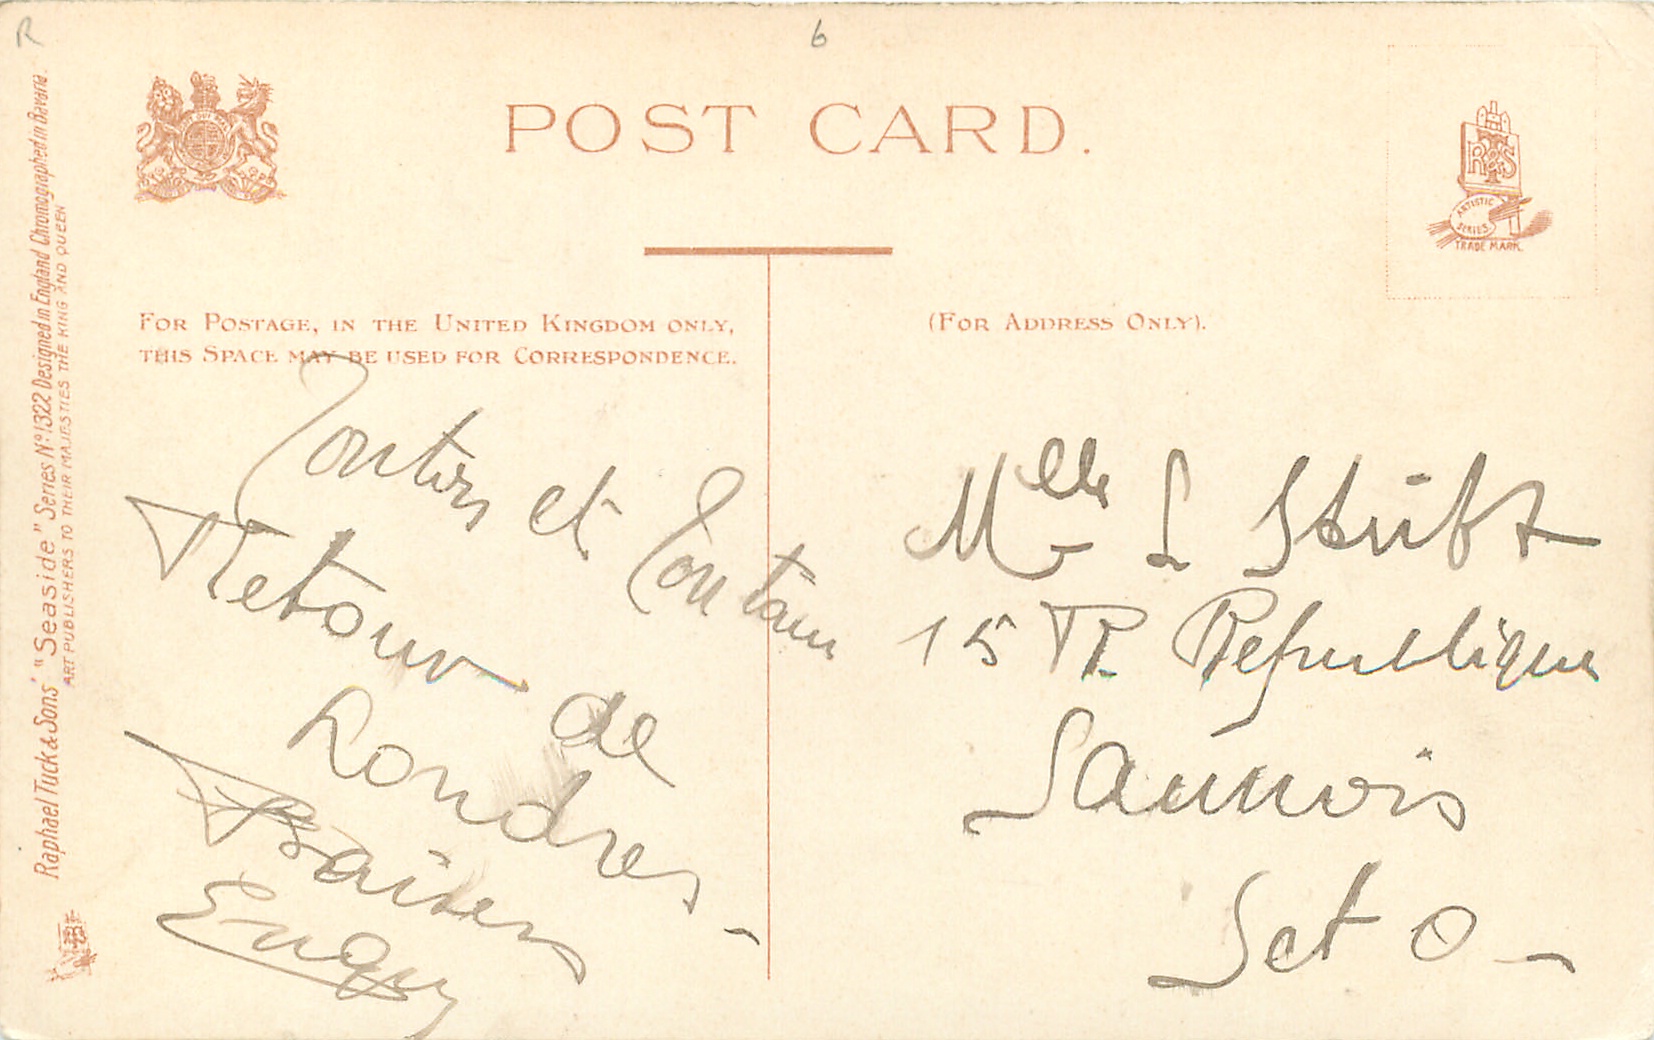 R
6
POST CARD.
R&TS
ARTISTIC SERIES
TRADE MARK.
FOR POSTAGE, IN THE UNITED KINGDOM ONLY,
THIS SPACE MAY BE USED FOR CORRESPONDENCE.
(FOR ADDRESS ONLY).
Raphael Tuck & Sons' "Seaside" Series No 1322 Designed in England Chromographed in Bavaria.
ART PUBLISHERS TO THEIR MAJESTIES THE KING AND QUEEN
et
Retour de
Londres –
Baisers
Mlle L
15 R République
Sannois
S et O –